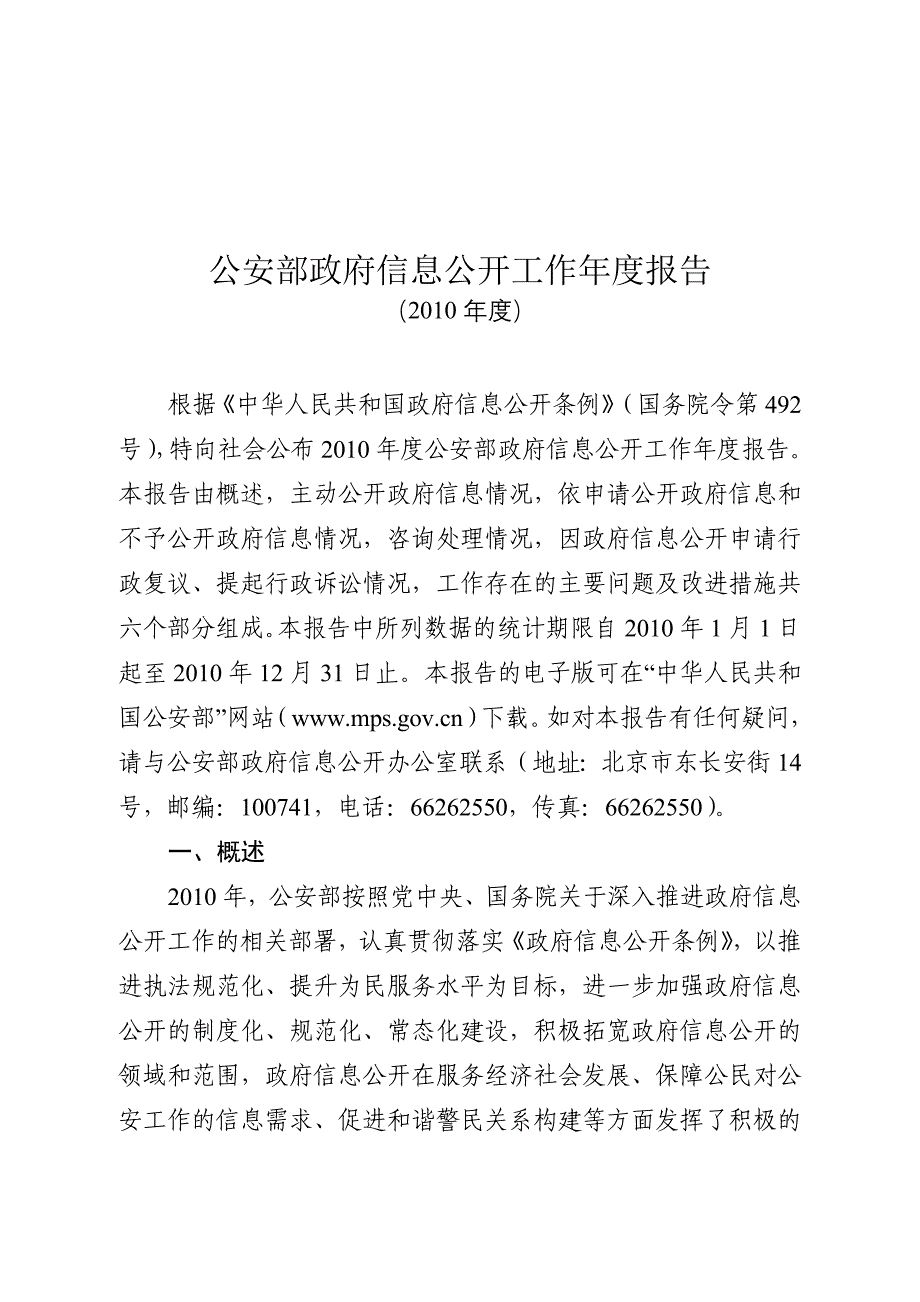 公安部政府信息公开工作年度报告
（2010 年度）
根据《中华人民共和国政府信息公开条例》（国务院令第 492
号），特向社会公布 2010 年度公安部政府信息公开工作年度报告。
本报告由概述，主动公开政府信息情况，依申请公开政府信息和
不予公开政府信息情况，咨询处理情况，因政府信息公开申请行
政复议、提起行政诉讼情况，工作存在的主要问题及改进措施共
六个部分组成。本报告中所列数据的统计期限自 2010 年 1 月 1 日
起至 2010 年 12 月 31 日止。本报告的电子版可在“中华人民共和
国公安部”网站（www.mps.gov.cn）下载。如对本报告有任何疑问，
请与公安部政府信息公开办公室联系（地址：北京市东长安街 14
号，邮编：100741，电话：66262550，传真：66262550）。
一、概述
2010 年，公安部按照党中央、国务院关于深入推进政府信息
公开工作的相关部署，认真贯彻落实《政府信息公开条例》，以推
进执法规范化、提升为民服务水平为目标，进一步加强政府信息
公开的制度化、规范化、常态化建设，积极拓宽政府信息公开的
领域和范围，政府信息公开在服务经济社会发展、保障公民对公
安工作的信息需求、促进和谐警民关系构建等方面发挥了积极的